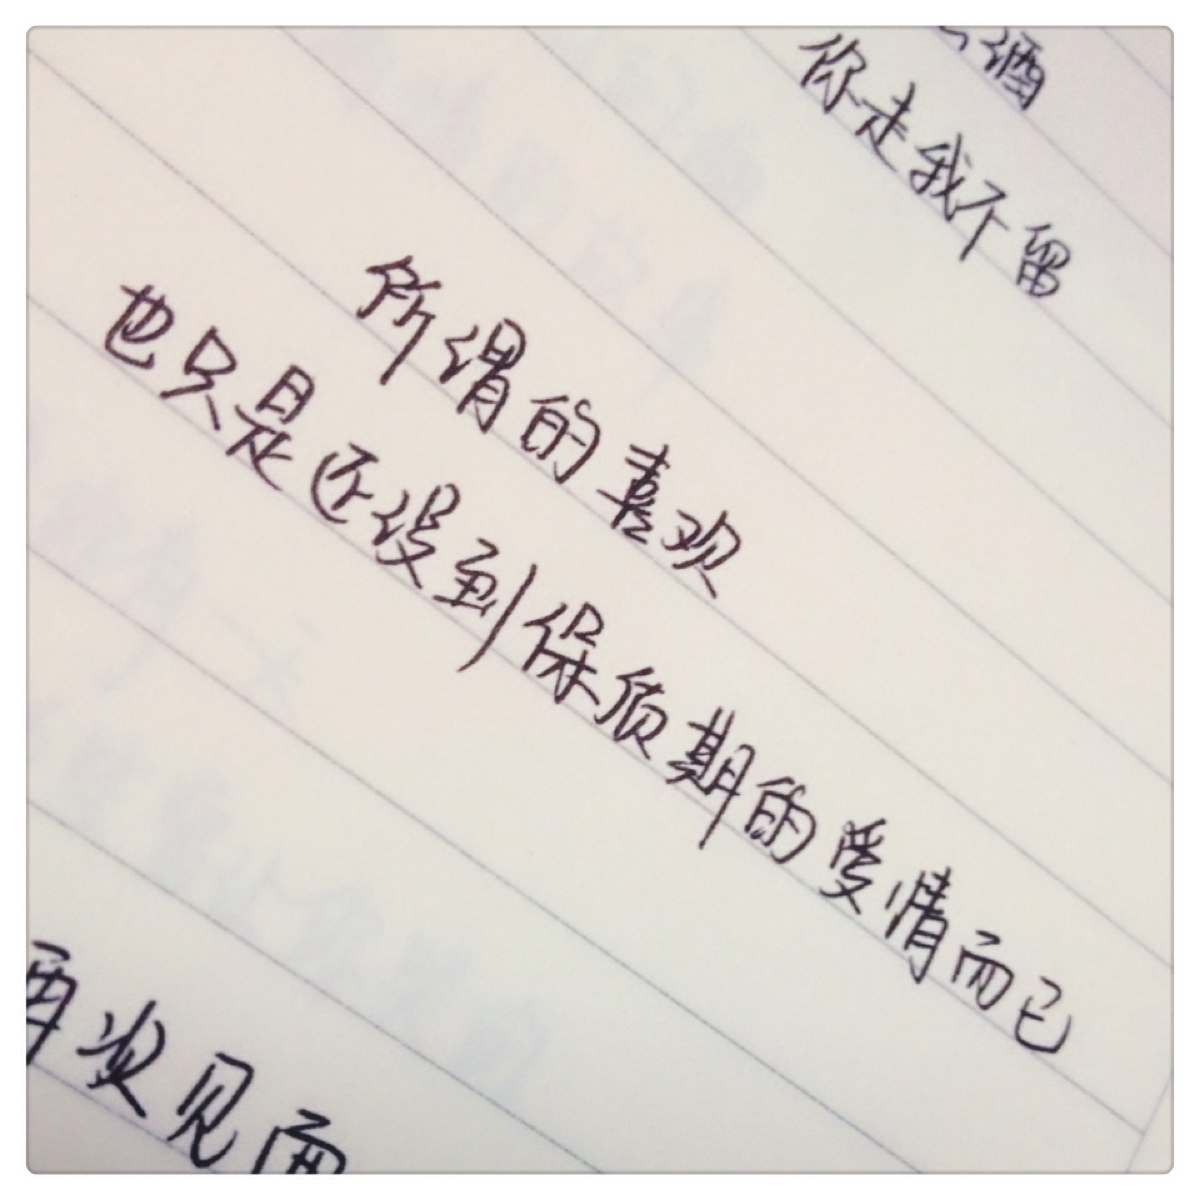 酒
你走我不留
所谓的喜欢
也只是还没到保质期的爱情而已
再次见面